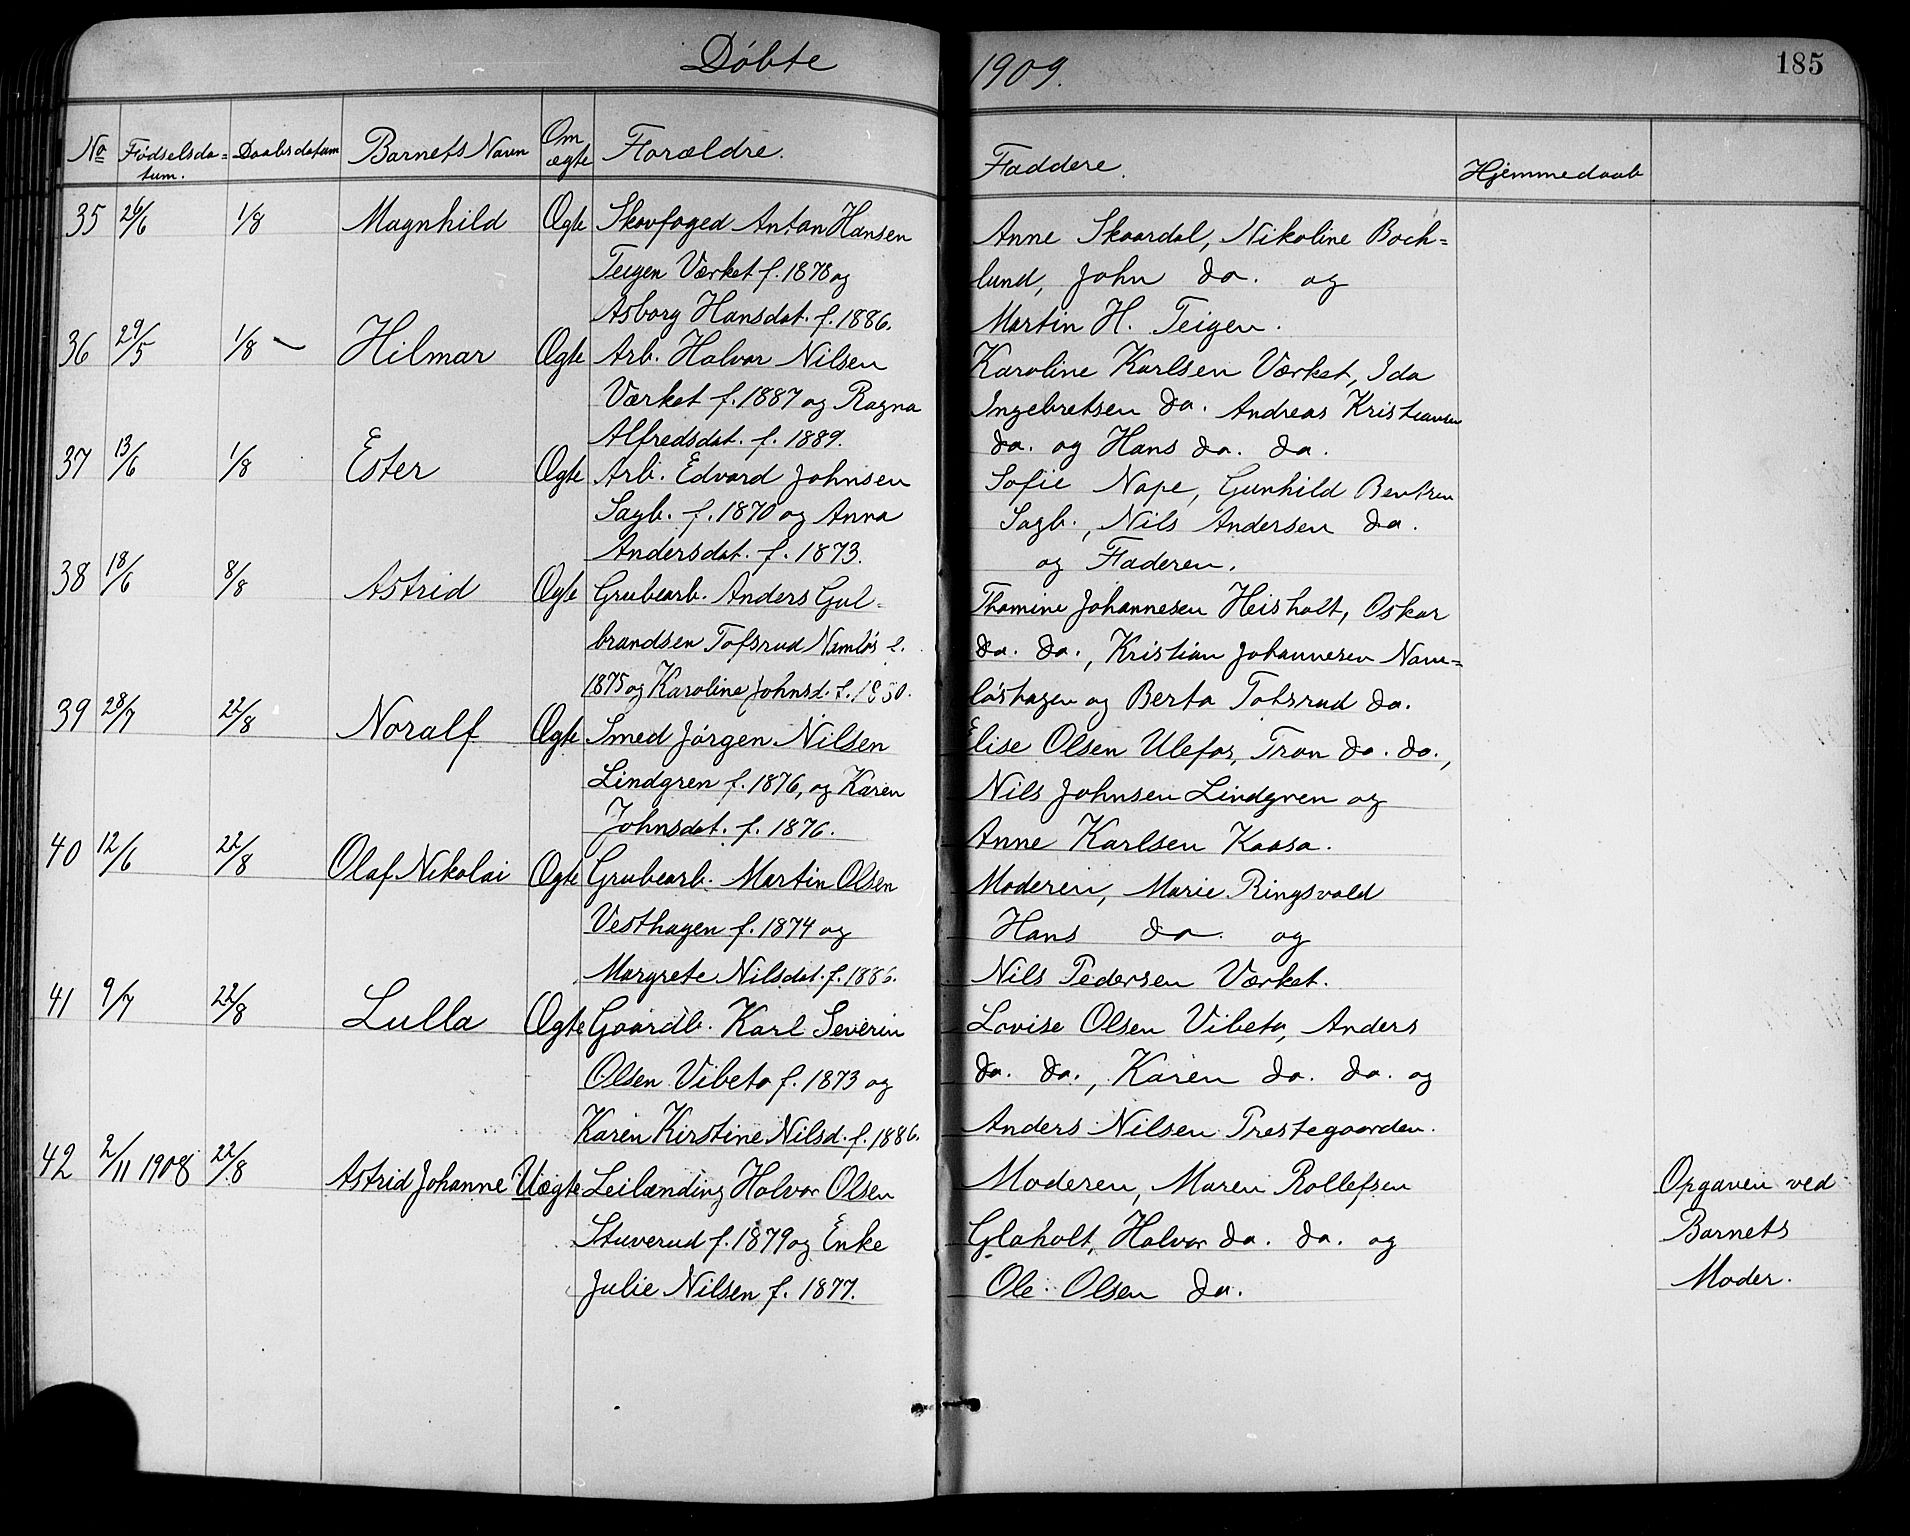 Døbte 1909. 185
No Fødselsda= Daabsdatum Barnets Navn Om Forældre. Faddere. Hjemmedaab
tum. ægte
35 26/6 1/8 Magnhild Ægte Skovfoged Anton Hansen
Teigen Værket f. 1878 og
Asborg Hansdat. f. 1886.
Anne Skaardal, Nikoline Boch=
lund, John do. og
Martin H. Teigen.
36 29/5 1/8 Hilmar Ægte Arb. Halvor Nilsen
Værket f. 1887 og Ragna
Alfredsdat. f. 1889.
Karoline Karlsen Værket, Ida
Ingebretsen do. Andreas Kristiansen
do. og Hans do. do.
37 13/6 1/8 Ester Ægte Arb. Edvard Johnsen
Sagb. f. 1870 og Anna
Andersdat. f. 1873.
Sofie Nape, Gunhild Bentsen
Sagb., Nils Andersen do.
og Faderen.
38 18/6 8/8 Astrid Ægte Grubearb. Anders Gul=
brandsen Tofsrud Namløs f.
1875 og Karoline Johnsd. f.
Thomine Johannesen Heisholt, Oskar
do. do., Kristian Johannesen Nam=
løshagen og Berta Tofsrud do.
39 28/7 22/8 Noralf Ægte Smed Jørgen Nilsen
Lindgren f. 1876, og Karen
Johnsdat. f. 1876.
Elise Olsen Ulefos, Tron do. do.,
Nils Johnsen Lindgren og
Anne Karlsen Kaasa.
40 12/6 22/8 Olaf Nikolai Ægte Grubearb. Martin Olsen
Vesthagen f. 1874 og
Margrete Nilsdat. f. 1886.
Moderen, Marie Ringsvold
Hans do. og
Nils Pedersen Værket.
41 9/7 22/8 Lulla Ægte Gaardb. Karl Severin
Olsen Vibeto f. 1873 og
Karen Kirstine Nilsd. f. 1886.
Lovise Olsen Vibeto, Anders
do. do., Karen do. do. og
Anders Nilsen Prestegaarden.
42 2/11 1908 22/8 Astrid Johanne Uægte Leilænding Halvor Olsen
Stuverud f. 1879 og Enke
Julie Nilsen f. 1877.
Moderen, Maren Rollefsen
Glaholt, Halvor do. do. og
Ole Olsen do.
Opgaven ved
Barnets
Moder.